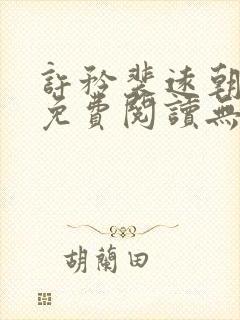 許矜裴遠朝
免費閱讀無
胡蘭田